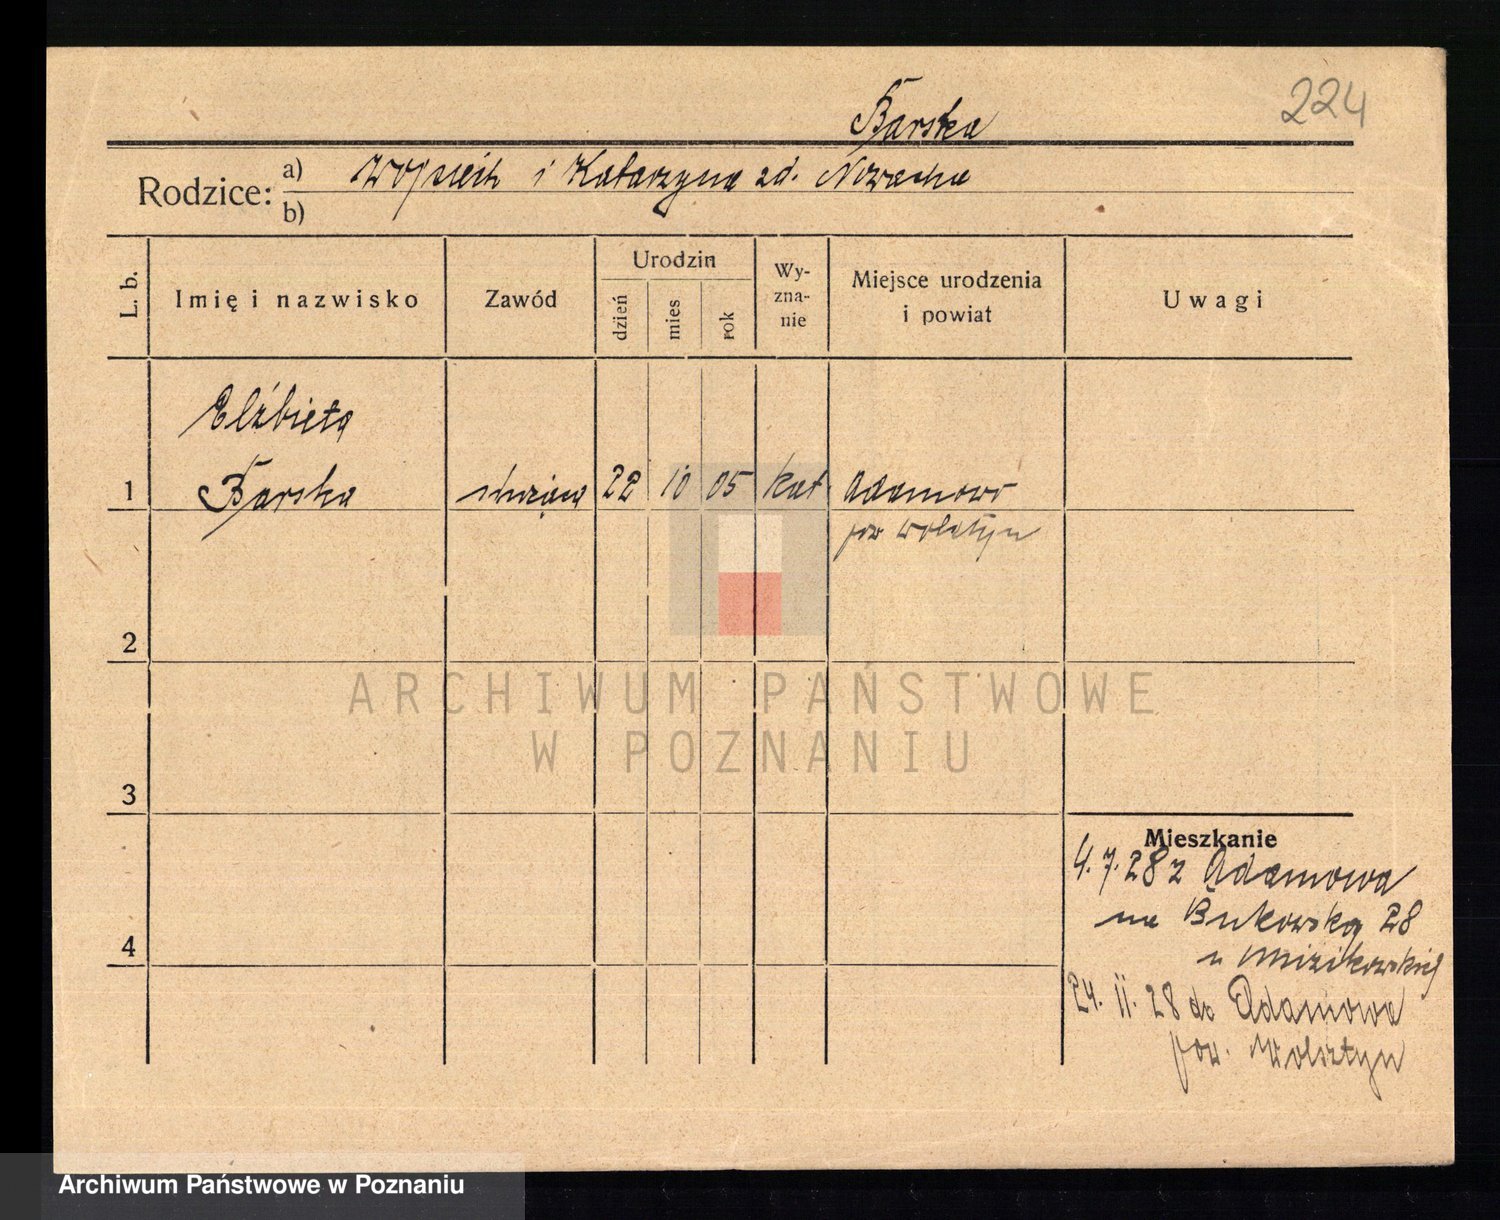 224
Barska
Rodzice: a) Wojciech i Katarzyna zd. Nowacka
b)
L. b.
Imię i nazwisko
Zawód
Urodzin
dzień
mies
rok
Wy-
zna-
nie
Miejsce urodzenia
i powiat
Uwagi
Elżbieta
1 Barska służąca 22 10 05 kat Adamowo
pow Wolsztyn
2
3
4
Mieszkanie
4.7.28 z Adamowa
na Bukowską 28
u
24. 11. 28 do Adamowa
pow. Wolsztyn
ARCHIWUM PAŃSTWOWE
W POZNANIU
Archiwum Państwowe w Poznaniu